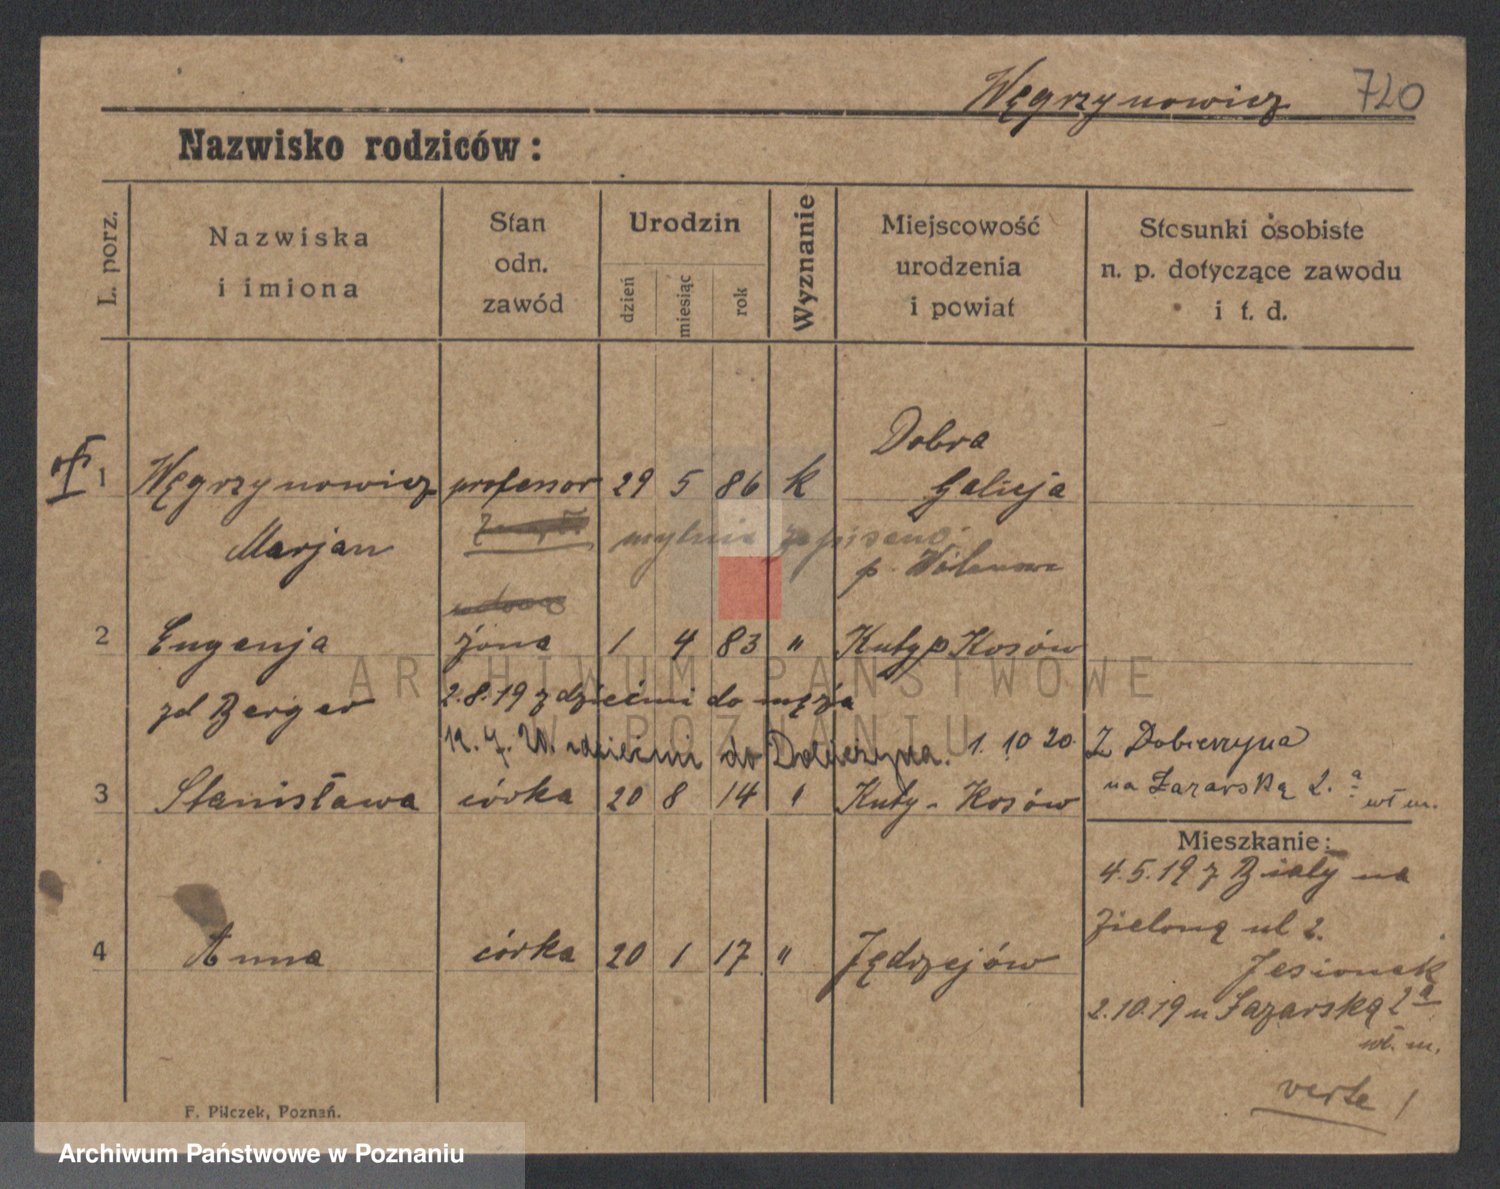 Węgrzynowicz 720
Nazwisko rodziców :
L. porz.
Nazwiska
i imiona
Stan
odn.
zawód
Urodzin
dzień
miesiąc
rok
Wyznanie
Miejscowość
urodzenia
i powiat
Stosunki osobiste
n. p. dotyczące zawodu
i t. d.
Dobra
1 Węgrzynowicz professor 29 5 86 k Galicja
Marjan mylnie zapisano
p.
2 Eugenja żona 1 4 83 " Kuty p Kosów
zd Berger 2.8.19 z dziećmi do męża
12. 7. 20. z dziećmi do Dobieszyna. 1. 10 20. Z Dobieszyna
na Łazarską 2.a wł m.
3 Stanisława córka 20 8 14 " Kuty - Kosów
Mieszkanie:
4.5.19 z Biały na
Zieloną ul 2.
4 Anna córka 20 1 17 " Jędrzejów
Jesionek
2.10.19 n Łazarską 2a
wł. m.
verte !
F. Pilczek, Poznań.
ARCHIWUM PAŃSTWOWE
W POZNANIU
Archiwum Państwowe w Poznaniu